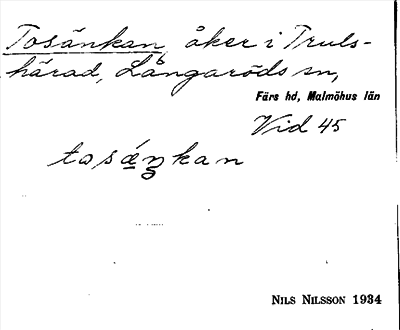 Tosänkan, åker i Truls-
härad, Långaröds sn,
Färs hd, Malmöhus län
Vid 45
tosä́n̥kan
NILS NILSSON 1934